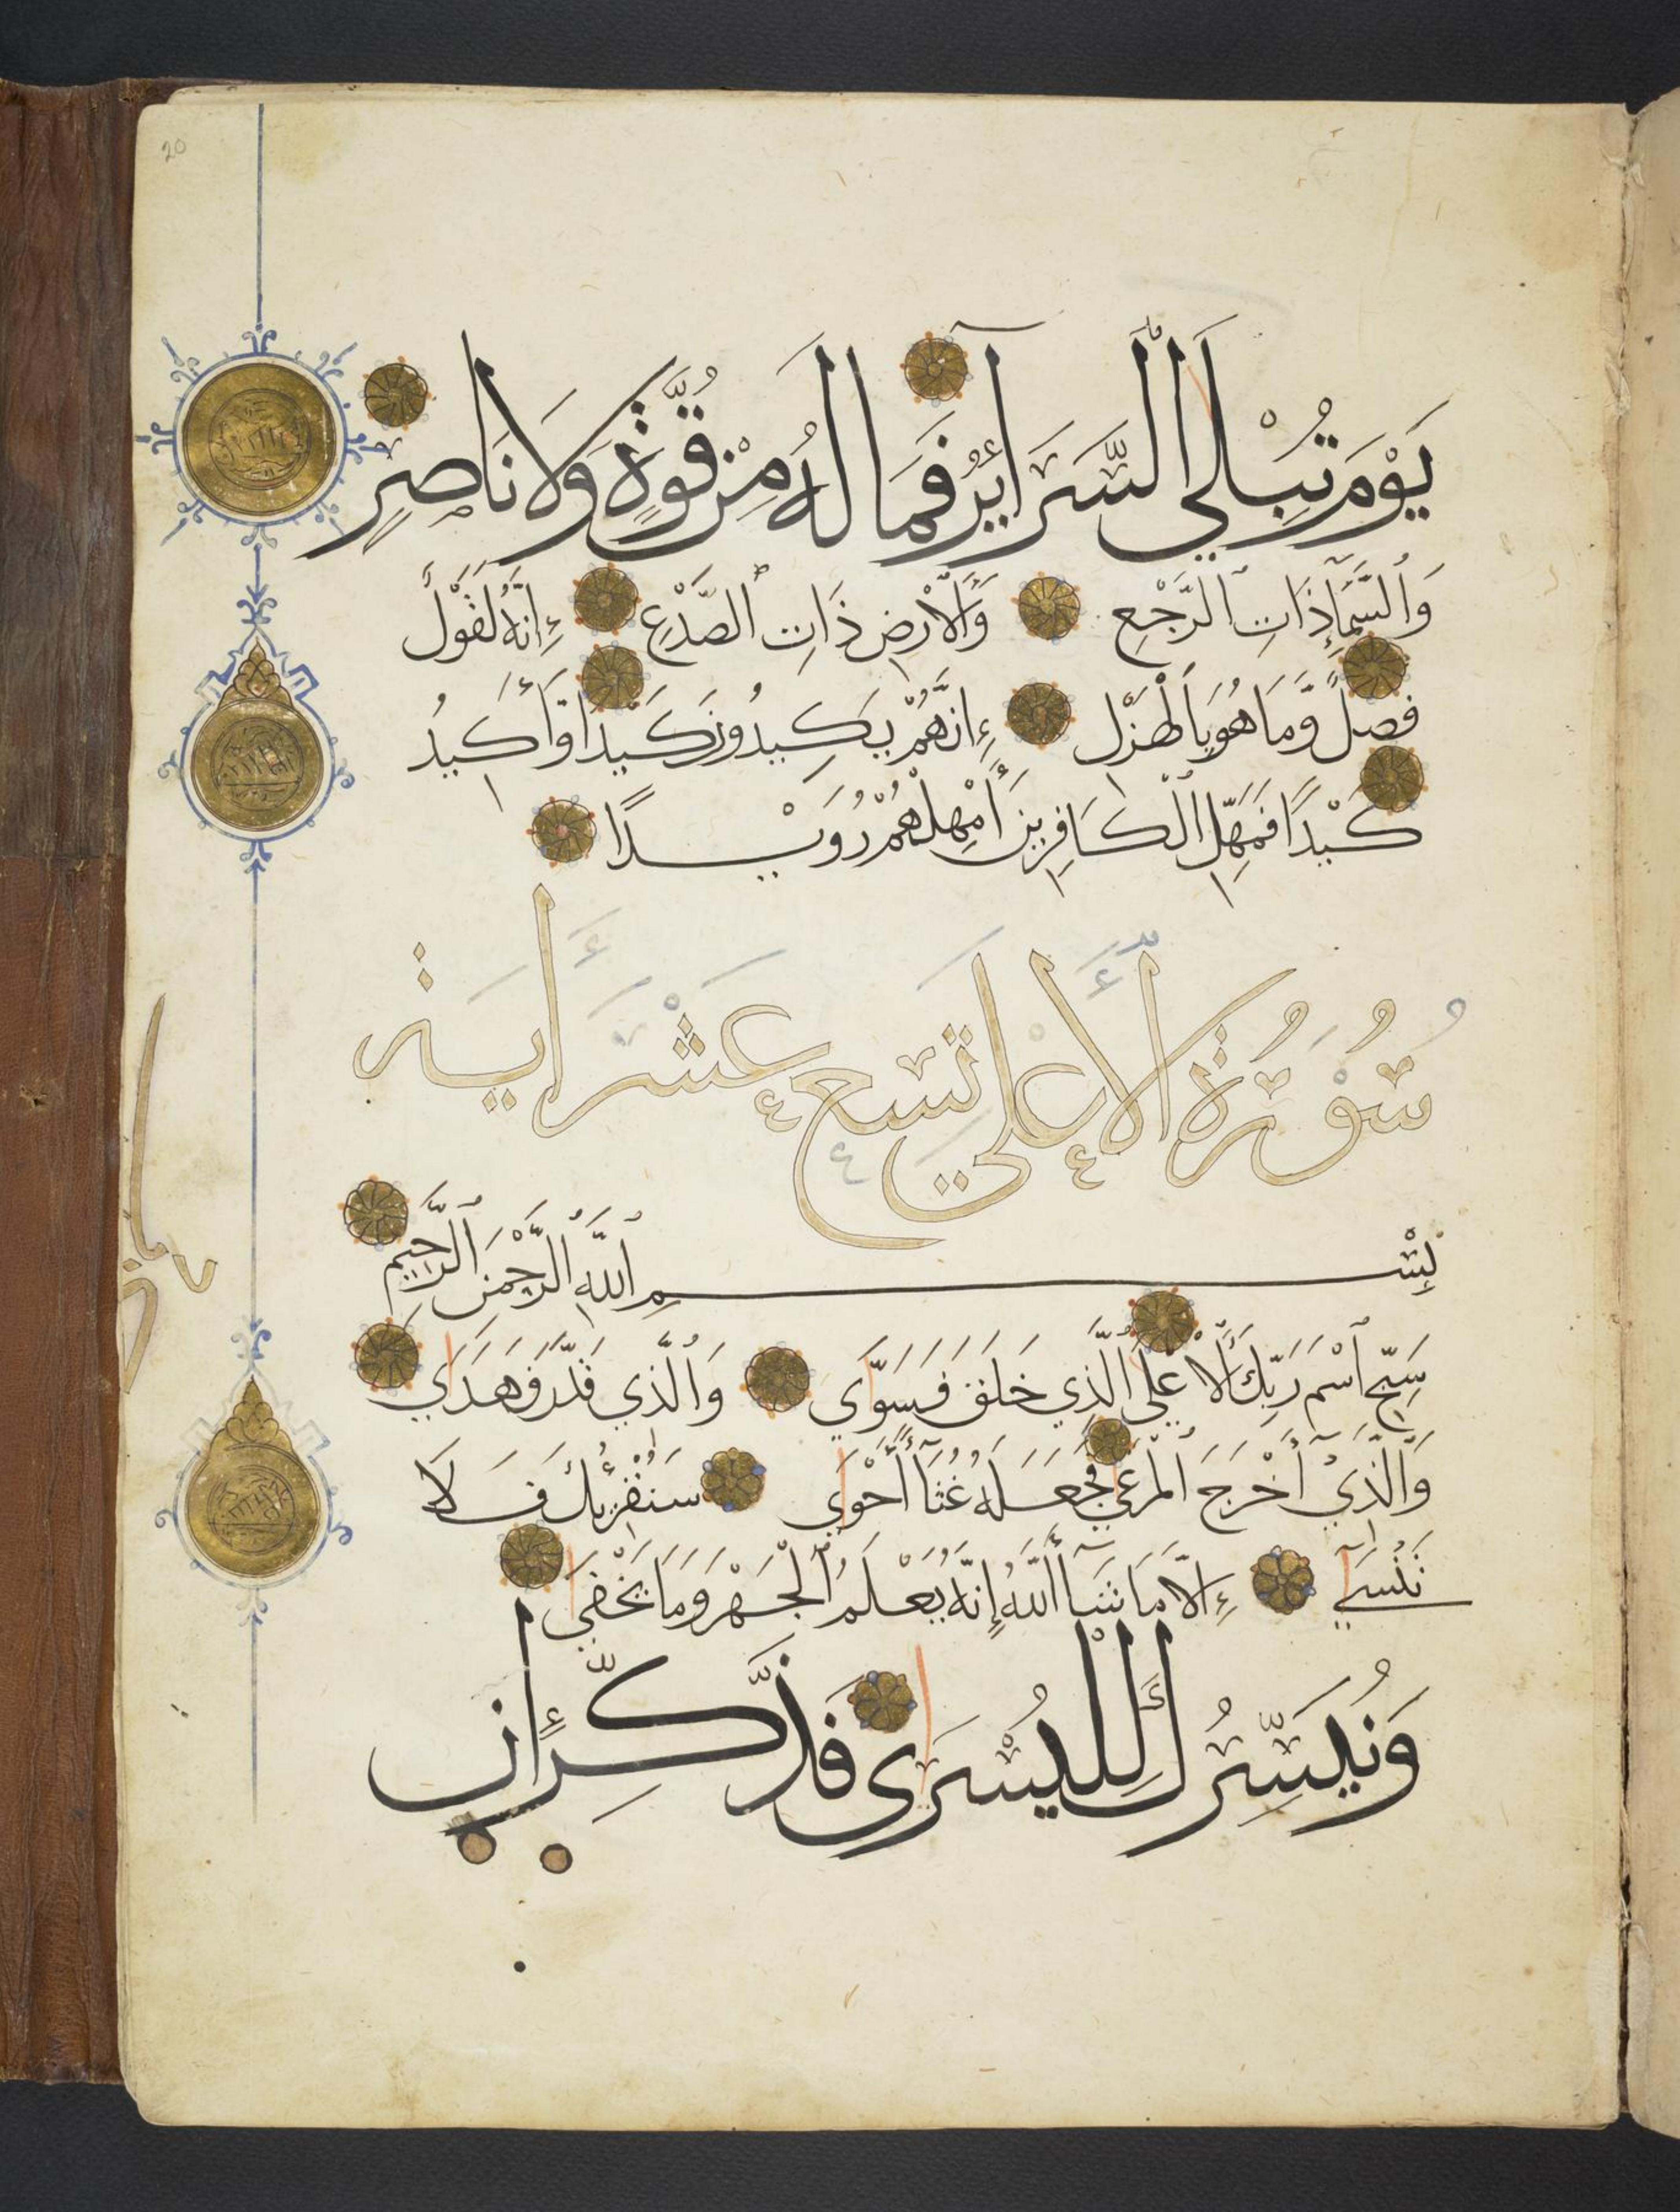 20
يَوْمَ تُبْلَي السَّرَايِرُ فَمَا لَهُ مِنْ قُوَّةٍ وَلَا نَاصِرٍ
وَالسَّمَآءِ ذَاتِ الرَّجْعِ وَالْأَرْضِ ذَاتِ الصَّدْعِ إِنَّهُ لَقَوْلٌ
فَصْلٌ وَّمَا هُوَ بِالْهَزْلِ إِنَّهُمْ يَكِيدُونَ كَيْدًا وَّأَكِيدُ
كَيْدًا فَمَهِّلِ الْكَافِرِينَ أَمْهِلْهُمْ رُوَيْدًا
سُورَةُ الْأَعْلَي تِسْعَ عَشَرَ أَيَة
بِسْمِ اللَّهِ الرَّحْمَنِ الرَّحِيمِ
سَبِّحِ اسْمَ رَبِّكَ الْأَعْلَي الَّذِي خَلَقَ فَسَوَّي وَالَّذِي قَدَّرَ فَهَدَي
وَالَّذِيْ أَخْرَجَ الْمَرْعَي فَجَعَلَهُ غُثَآءً أَحْوَي سَنُقْرِئُكَ فَلَا
تَنْسَي إِلَّا مَا شَآءَ اللَّهُ إِنَّهُ يَعْلَمُ الْجَهْرَ وَمَا يَخْفَي
وَنُيَسِّرُكَ لِلْيُسْرَي فَذَكِّرْ إِنْ